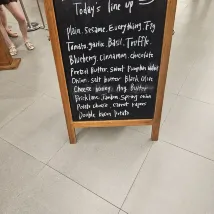 Today's line up
Plain. Sesame. Everything. Fig
Tomato garlic. Basil. Truffle.
Blueberry. Cinnamon. chocolate
Pretzel Butter. Sweet Pumpkin Walnut
Onion. salt butter Black Olive
Cheese Honey. Ang Butter
Bacon Spring onion
Potato cheese, Carrot
Double bacon Potato